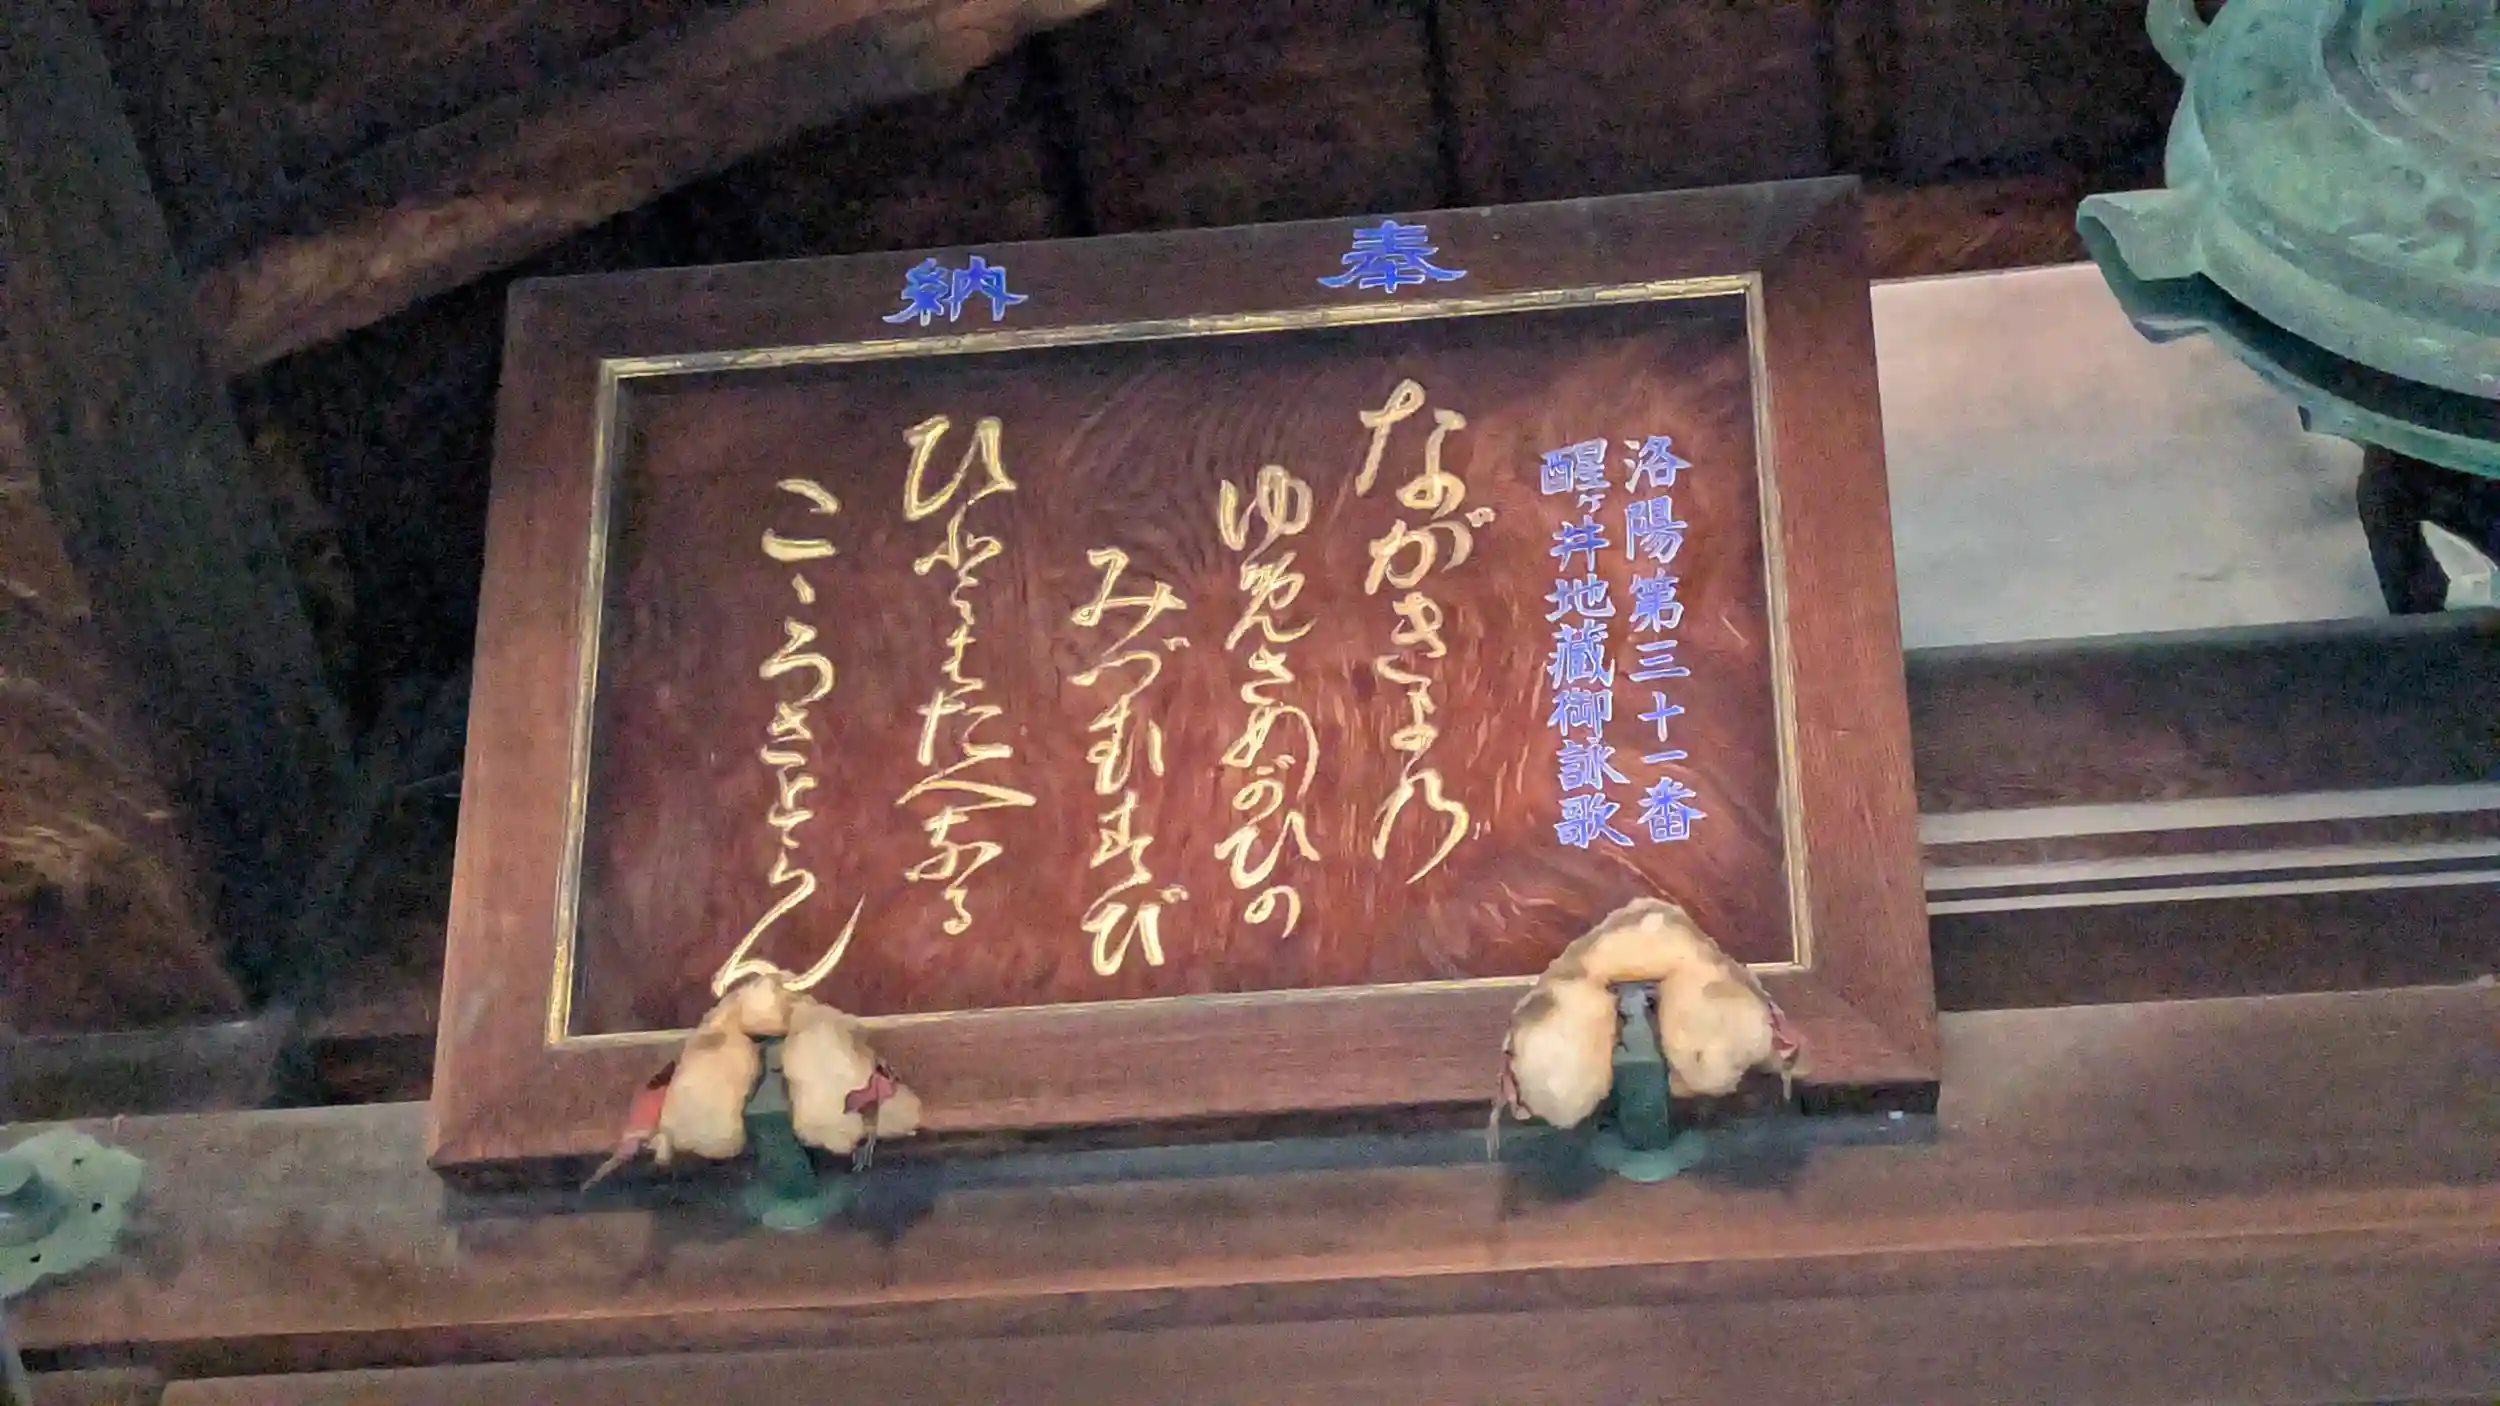 奉納
洛陽第三十一番
醒ヶ井地蔵御詠歌
ながきよの
ゆめもさめがひの
みづむすび
ひとをもたへなる
こゝろさとらん